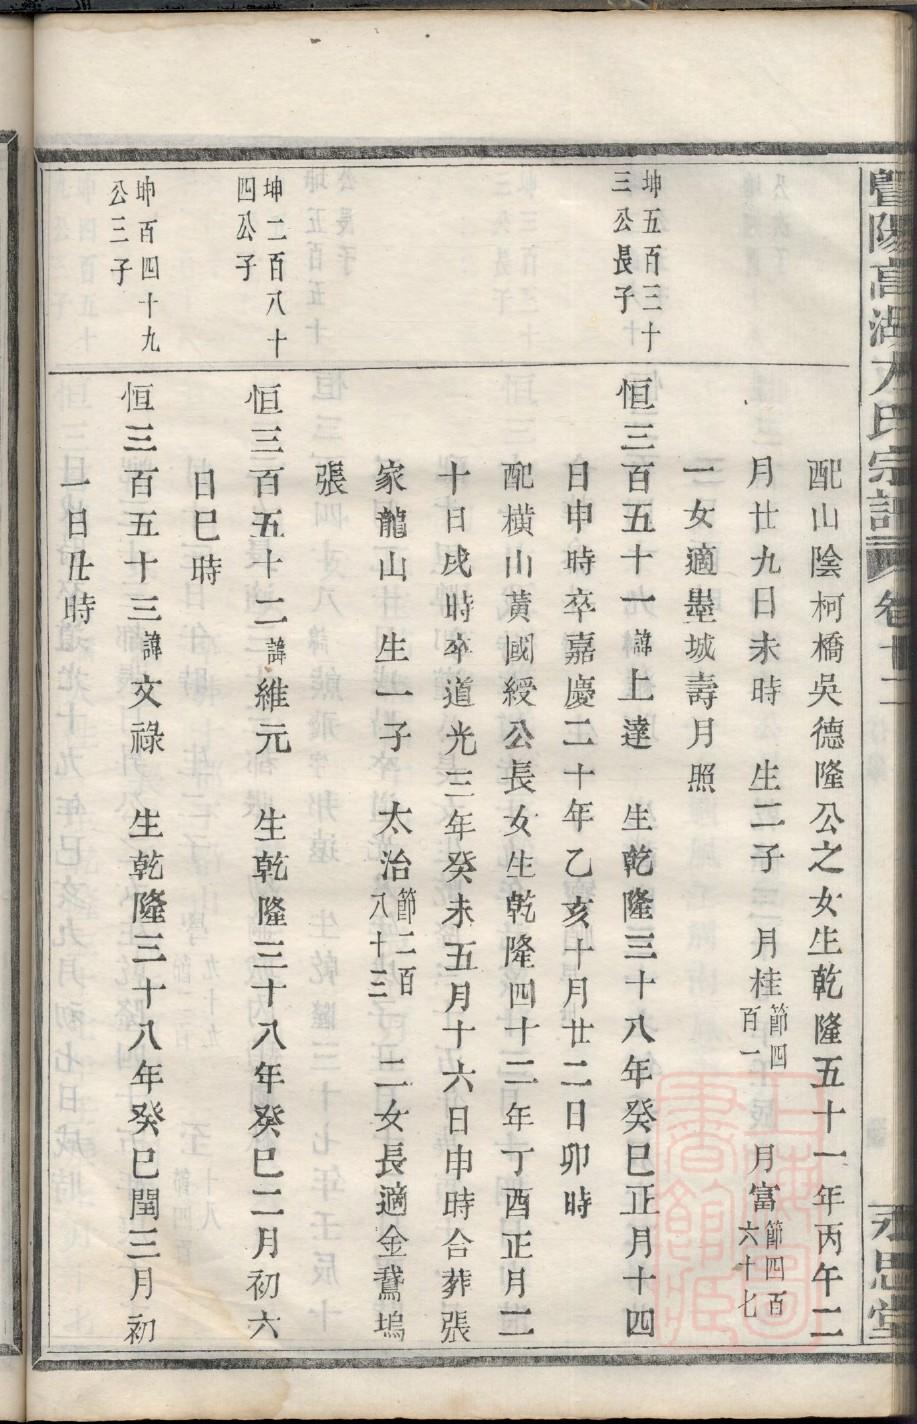 暨陽高湖方氏宗譜 卷十二 永思堂
配山陰柯橋吳德隆公之女生乾隆五十一年丙午二
月廿九日未時 生二子 月桂節四百一 月富節四百六十七
一女適墨城壽月照
坤五百三十三公長子
恒三百五十一諱上達 生乾隆三十八年癸巳正月十四
日申時卒嘉慶二十年乙亥十月廿二日卯時
配橫山黃國綬公長女生乾隆四十二年丁酉正月二
十日戌時卒道光三年癸未五月十六日申時合葬張
家龍山 生一子 太治節二百八十三 二女長適金鵞塢
張
坤二百八十四公子
恒三百五十二諱維元 生乾隆三十八年癸巳二月初六
日巳時
坤百四十九公三子
恒三百五十三諱文祿 生乾隆三十八年癸巳閏三月初
一日丑時